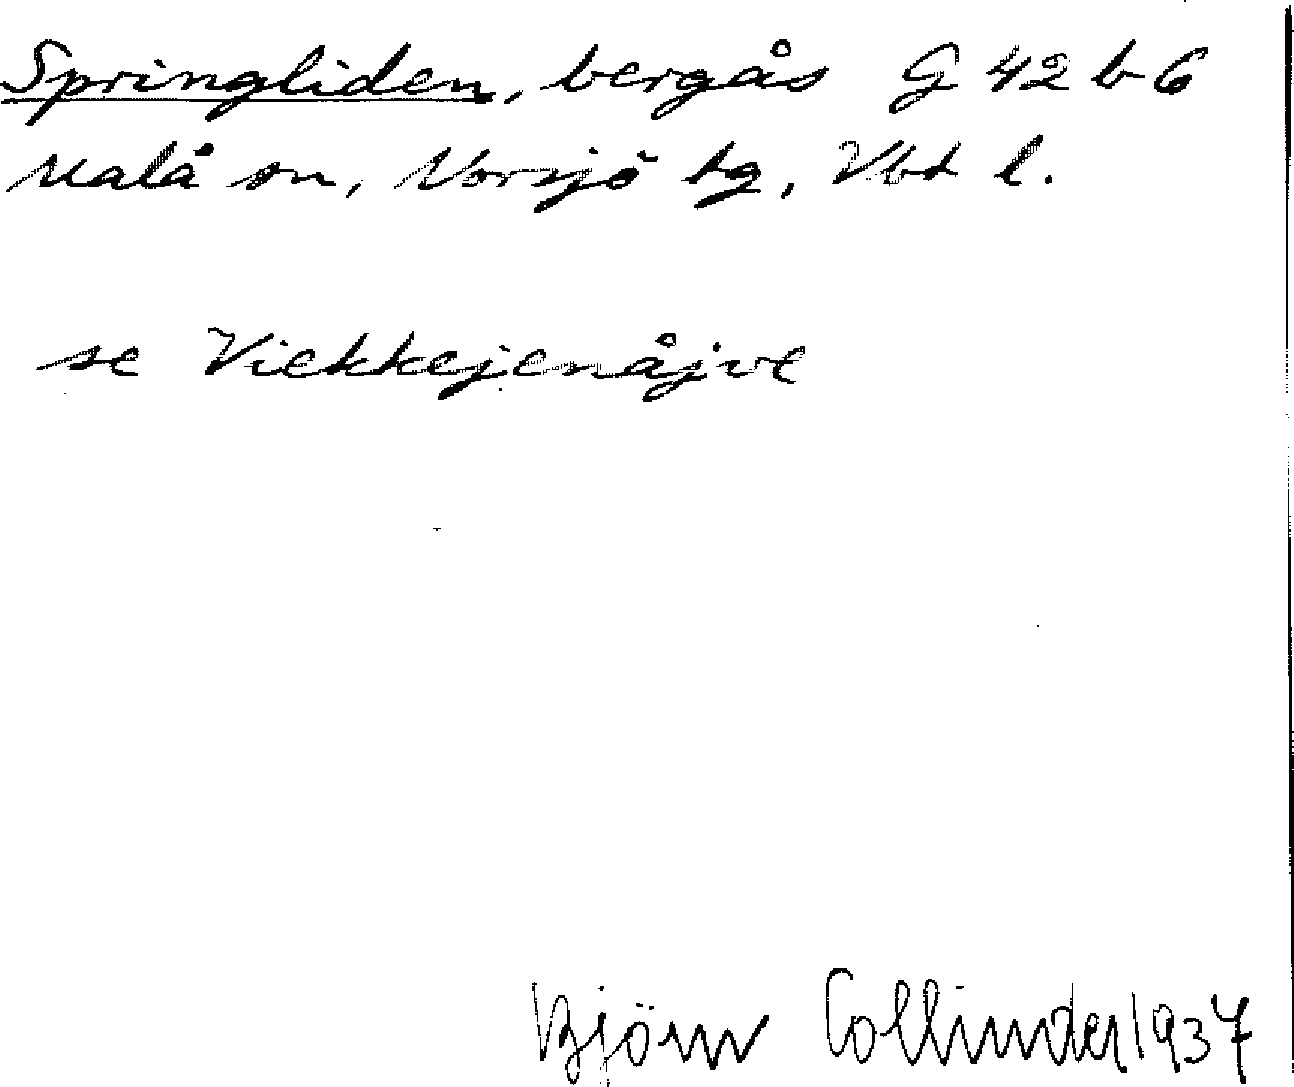 Springliden, bergås G 42 b 6
Malå sn, Norsjö tg, Vbt l.
se Viekkejenåjve
Björn Collinder 1937